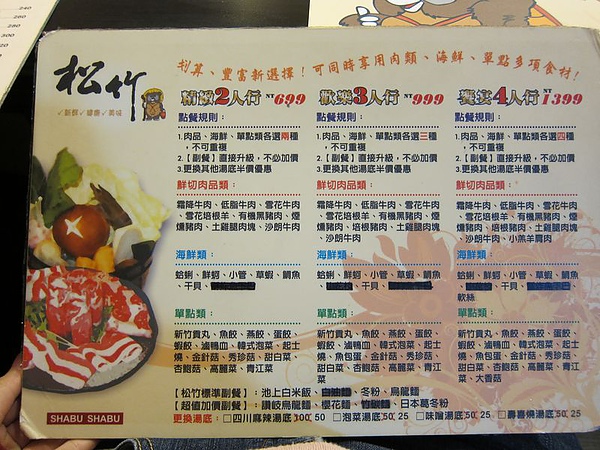 240
260
290
松竹
新鮮 健康 美味
精緻2人行 NT699
點餐規則：
1.肉品、海鮮、單點類各選兩種
，不可重複
2.【副餐】直接升級，不必加價
3.更換其他湯底半價優惠
鮮切肉品類：
霜降牛肉、低脂牛肉、雪花牛肉
、雪花培根羊、有機黑豬肉、煙
燻豬肉、土雞腿肉塊、沙朗牛肉
海鮮類：
蛤蜊、鮮蚵、小管、草蝦、鯛魚
、干貝、
單點類：
新竹貢丸、魚餃、燕餃、蛋餃、
蝦餃、滷鴨血、韓式泡菜、起士
燒、金針菇、秀珍菇、甜白菜、
杏鮑菇、高麗菜、青江菜
歡樂3人行 NT999
點餐規則：
1.肉品、海鮮、單點類各選三種
，不可重複
2.【副餐】直接升級，不必加價
3.更換其他湯底半價優惠
鮮切肉品類：
霜降牛肉、低脂牛肉、雪花牛肉
、雪花培根羊、有機黑豬肉、煙
燻豬肉、土雞腿肉塊、
、沙朗牛肉
海鮮類：
蛤蜊、鮮蚵、小管、草蝦、鯛魚
、干貝、
單點類：
新竹貢丸、魚餃、燕餃、蛋餃、
蝦餃、滷鴨血、韓式泡菜、起士
燒、魚包蛋、金針菇、秀珍菇、
甜白菜、杏鮑菇、高麗菜、青江
菜
饗宴4人行 NT1399
點餐規則：
1.肉品、海鮮、單點類各選四種
，不可重複
2.【副餐】直接升級，不必加價
3.更換其他湯底半價優惠
鮮切肉品類：
霜降牛肉、低脂牛肉、雪花牛肉
、雪花培根羊、有機黑豬肉、煙
燻豬肉、土雞腿肉塊、
沙朗牛肉、小羔羊肩肉
海鮮類：
蛤蜊、鮮蚵、小管、草蝦、鯛魚
、干貝、
軟絲
單點類：
新竹貢丸、魚餃、燕餃、蛋餃、
蝦餃、滷鴨血、韓式泡菜、起士
燒、魚包蛋、金針菇、秀珍菇、
甜白菜、杏鮑菇、高麗菜、青江
菜、大香菇
豐富新選擇！可同時享用肉類、海鮮、單點多項食材！
【松竹標準副餐】：池上白米飯、冬粉、烏龍麵
【超值加價副餐】：讚岐烏龍麵、櫻花麵、日本葛冬粉
更換湯底：□四川麻辣湯底100,50 □泡菜湯底50,25 □味噌湯底50,25 □壽喜燒湯底50,25
SHABU SHABU